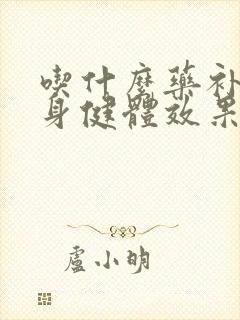 喫什麼藥補
身健體效果
盧小明